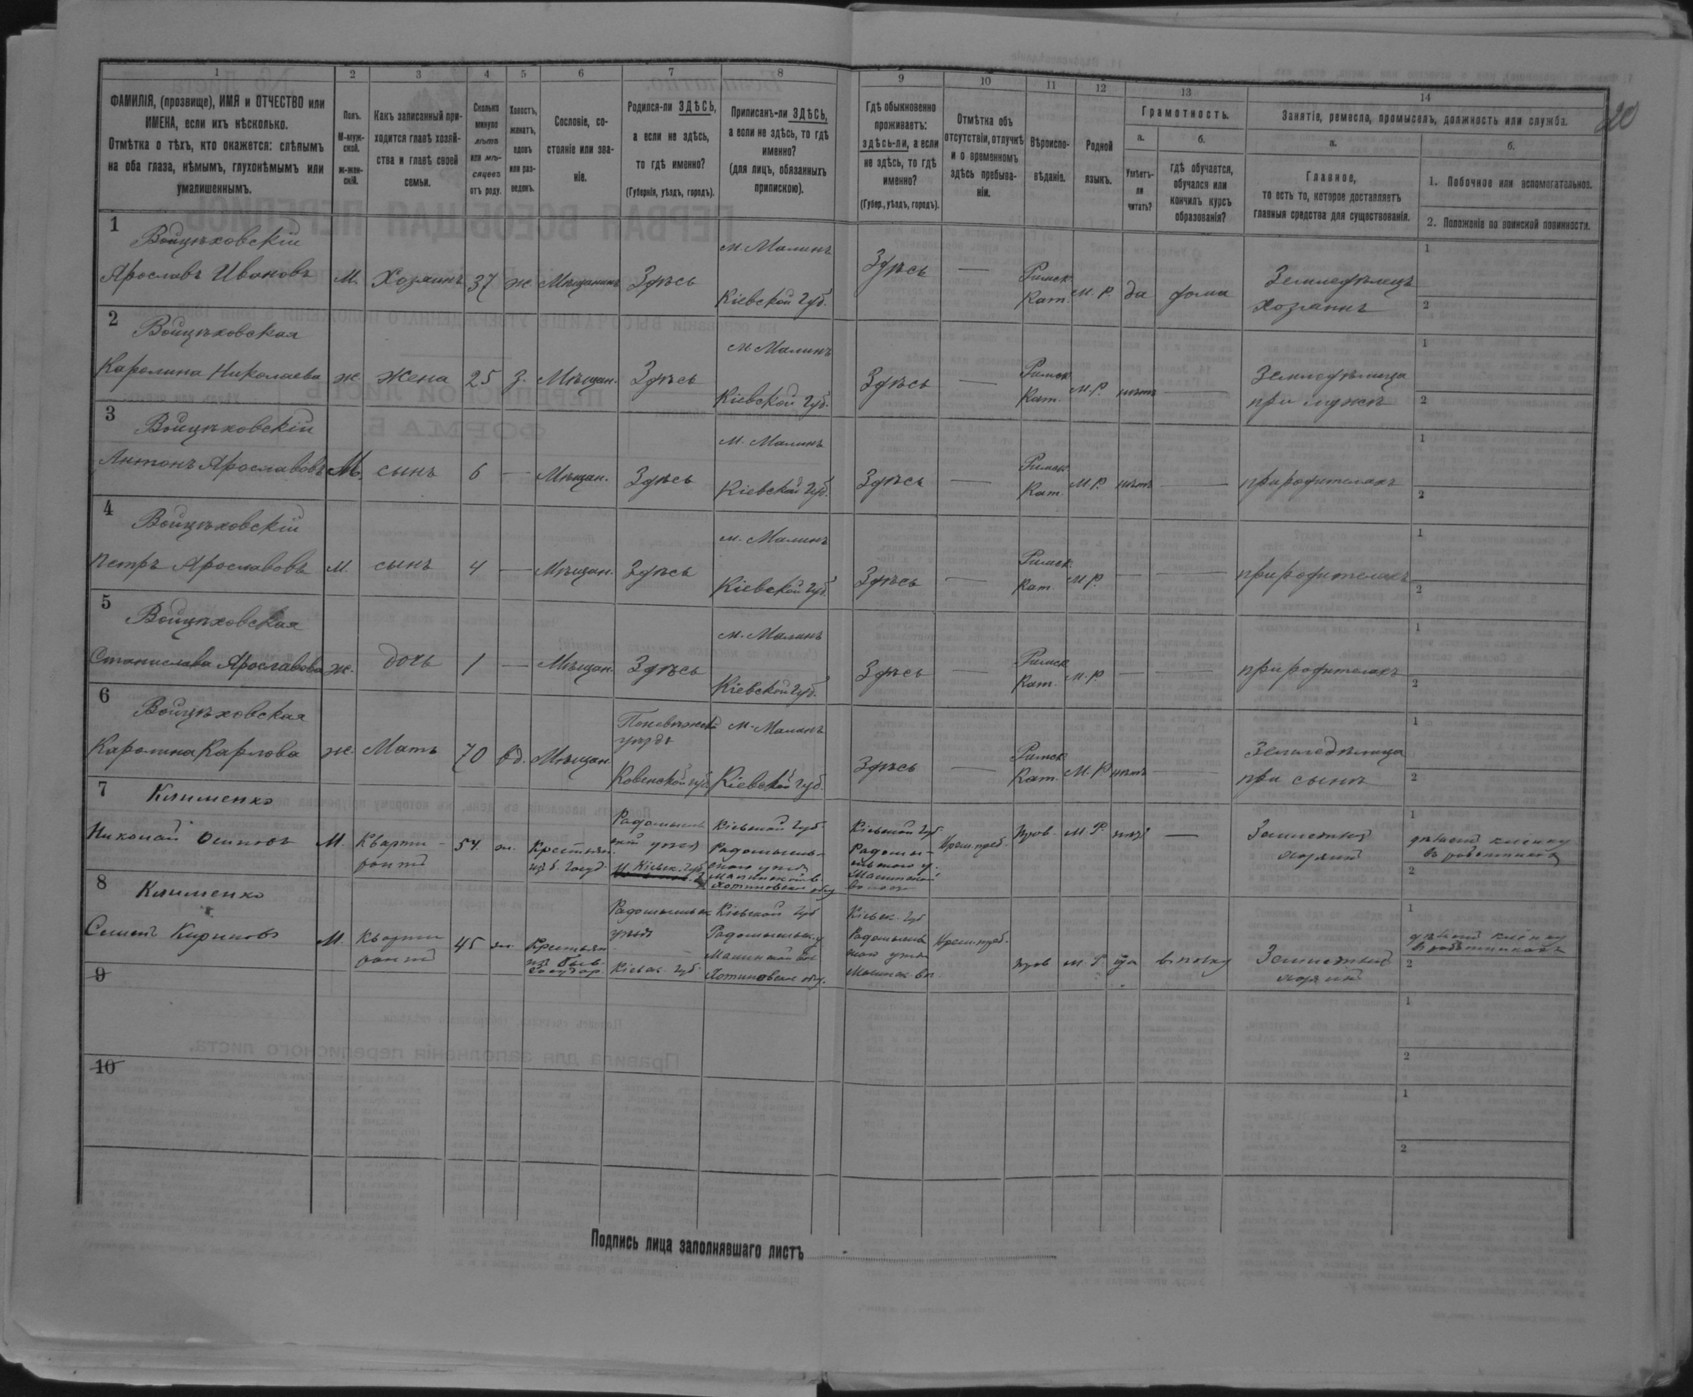 20
1 2 3 4 5 6 7 8 9 10 11 12 13 14
ФАМИЛІЯ, (прозвище), ИМЯ и ОТЧЕСТВО или ИМЕНА, если ихъ нѣсколько.
Отмѣтка о тѣхъ, кто окажется: слѣпымъ на оба глаза, нѣмымъ, глухонѣмымъ или умалишеннымъ.
Полъ.
М-муж-
ской.
ж-жен-
скій.
Какъ записанный при-
ходится главѣ хозяй-
ства и главѣ своей
семьи.
Сколько
минуло
лѣтъ
или мѣ-
сяцевъ
отъ роду.
Холостъ,
женатъ,
вдовъ
или раз-
веденъ.
Сословіе, со-
стояніе или зва-
ніе.
Родился-ли ЗДѢСЬ,
а если не здѣсь,
то гдѣ именно?
(Губернія, уѣздъ, городъ).
Приписанъ-ли ЗДѢСЬ,
а если не здѣсь, то гдѣ
именно?
(для лицъ, обязанныхъ
припискою).
Гдѣ обыкновенно
проживаетъ:
здѣсь-ли, а если
не здѣсь, то гдѣ
именно?
(Губер., уѣздъ, городъ).
Отмѣтка объ
отсутствіи, отлучкѣ
и о временномъ
здѣсь пребыва-
ніи.
Вѣроиспо-
вѣданіе.
Родной
языкъ.
Грамотность.
а.
Умѣетъ-
ли
читать?
б.
гдѣ обучается,
обучался или
кончилъ курсъ
образованія?
Занятіе, ремесло, промыселъ, должность или служба.
а.
Главное,
то есть то, которое доставляетъ
главныя средства для существованія.
б.
1. Побочное или вспомогательное.
2. Положеніе по воинской повинности.
1
Войцѣховскій
Ярославъ Ивановъ М. Хозяинъ 37 ж. Мѣщанинъ Здѣсь
м Малинъ
Кіевской Губ.
Здѣсь —
Римск
Кат. М. Р. да дома
Земледѣлецъ
хозяинъ
1
2
2
Войцѣховская
Каролина Николаева ж. жена 25 з. Мѣщан. Здѣсь
м Малинъ
Кіевской Губ.
Здѣсь —
Римск
Кат. М. Р. нѣтъ —
Земледѣлица
при мужѣ
1
2
3
Войцѣховскій
Антонъ Ярославовъ М. сынъ 6 — Мѣщан. Здѣсь
м. Малинъ
Кіевской Губ.
Здѣсь —
Римск
Кат. М Р. нѣтъ —
при родителяхъ
1
2
4
Войцѣховскій
Петръ Ярославовъ М. сынъ 4 — Мѣщан. Здѣсь
м. Малинъ
Кіевской Губ.
Здѣсь —
Римск
Кат. М Р. — —
при родителяхъ
1
2
5
Войцѣховская
Станислава Ярославова ж. дочь 1 — Мѣщан. Здѣсь
м. Малинъ
Кіевской Губ.
Здѣсь —
Римск
Кат. М. Р. — —
при родителяхъ
1
2
6
Войцѣховская
Каролина Карлова ж. Мать 70 вд. Мѣщан.
уѣздъ
Ковенской губ.
м. Малинъ
Кіевской Губ.
Здѣсь —
Римск
Кат. М. Р нѣтъ —
Земледѣлица
при сынѣ
1
2
7
Клименко
Николай Осиповъ М. Кварти-
рантъ 54
Крестьян
изъ б. госуд.
Радомысль
ской уѣзд
Кіевск. губ
Кіевской Губ
Радомысль-
ского уѣзд
Малинской в.
Кіевской Губ
Радомы-
сльского у.
Малинской
волости
Врем. преб. прав. М. Р. нѣтъ —
1
въ работника
2
8
Клименко
Кириловъ М. Кварти
рантъ 45
Крестьян
из быв.
Государ
Радомысльск
уѣзд
Кіевск. губ
Кіевской Губ
Радомысльск. у
Малинской вол
Кіевск. Губ
Радомысль
ского уѣзд
Малинск. во
Врем. преб. прав м. Р да въ полку
1
2
9
1
2
10
1
2
Подпись лица заполнявшаго листъ